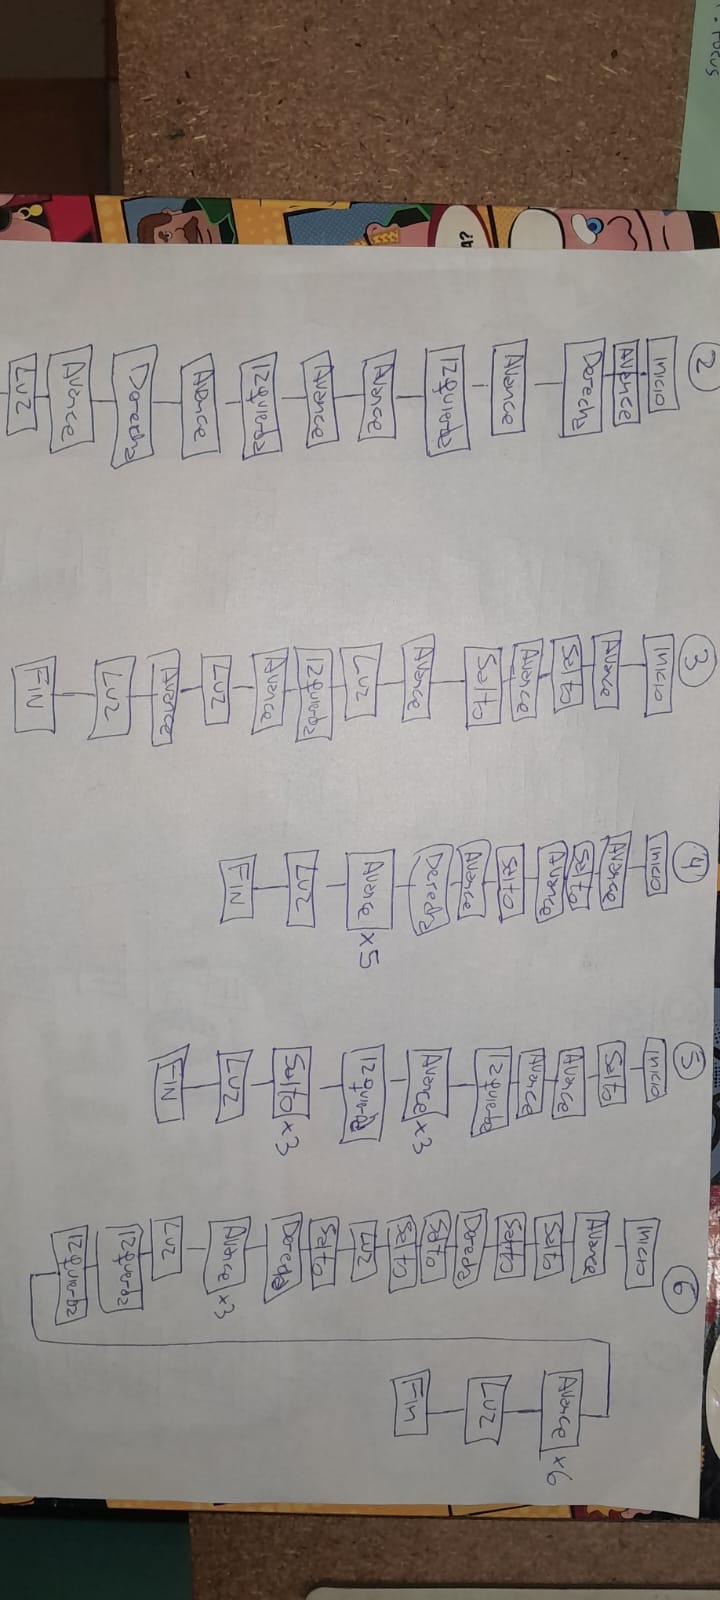 2
Inicio
Avance
Derecha
Avance
Izquierda
Avance
Avance
Izquierda
Avance
Derecha
Avance
Luz
3
Inicio
Avance
Salto
Avance
Salto
Avance
Luz
Izquierda
Avance
Luz
Avance
Luz
FIN
4
Inicio
Avance
Salto
Avance
Salto
Avance
Derecha
Avance x5
Luz
FIN
5
Inicio
Salto
Avance
Avance
Izquierda
Avance x3
Izquierda
Salto x3
Luz
FIN
6
Inicio
Avance
Salto
Salto
Derecha
Salto
Salto
Luz
Salto
Derecha
Avance x3
Luz
Izquierda
Izquierda
Avance x6
Luz
Fin
A?
Focus